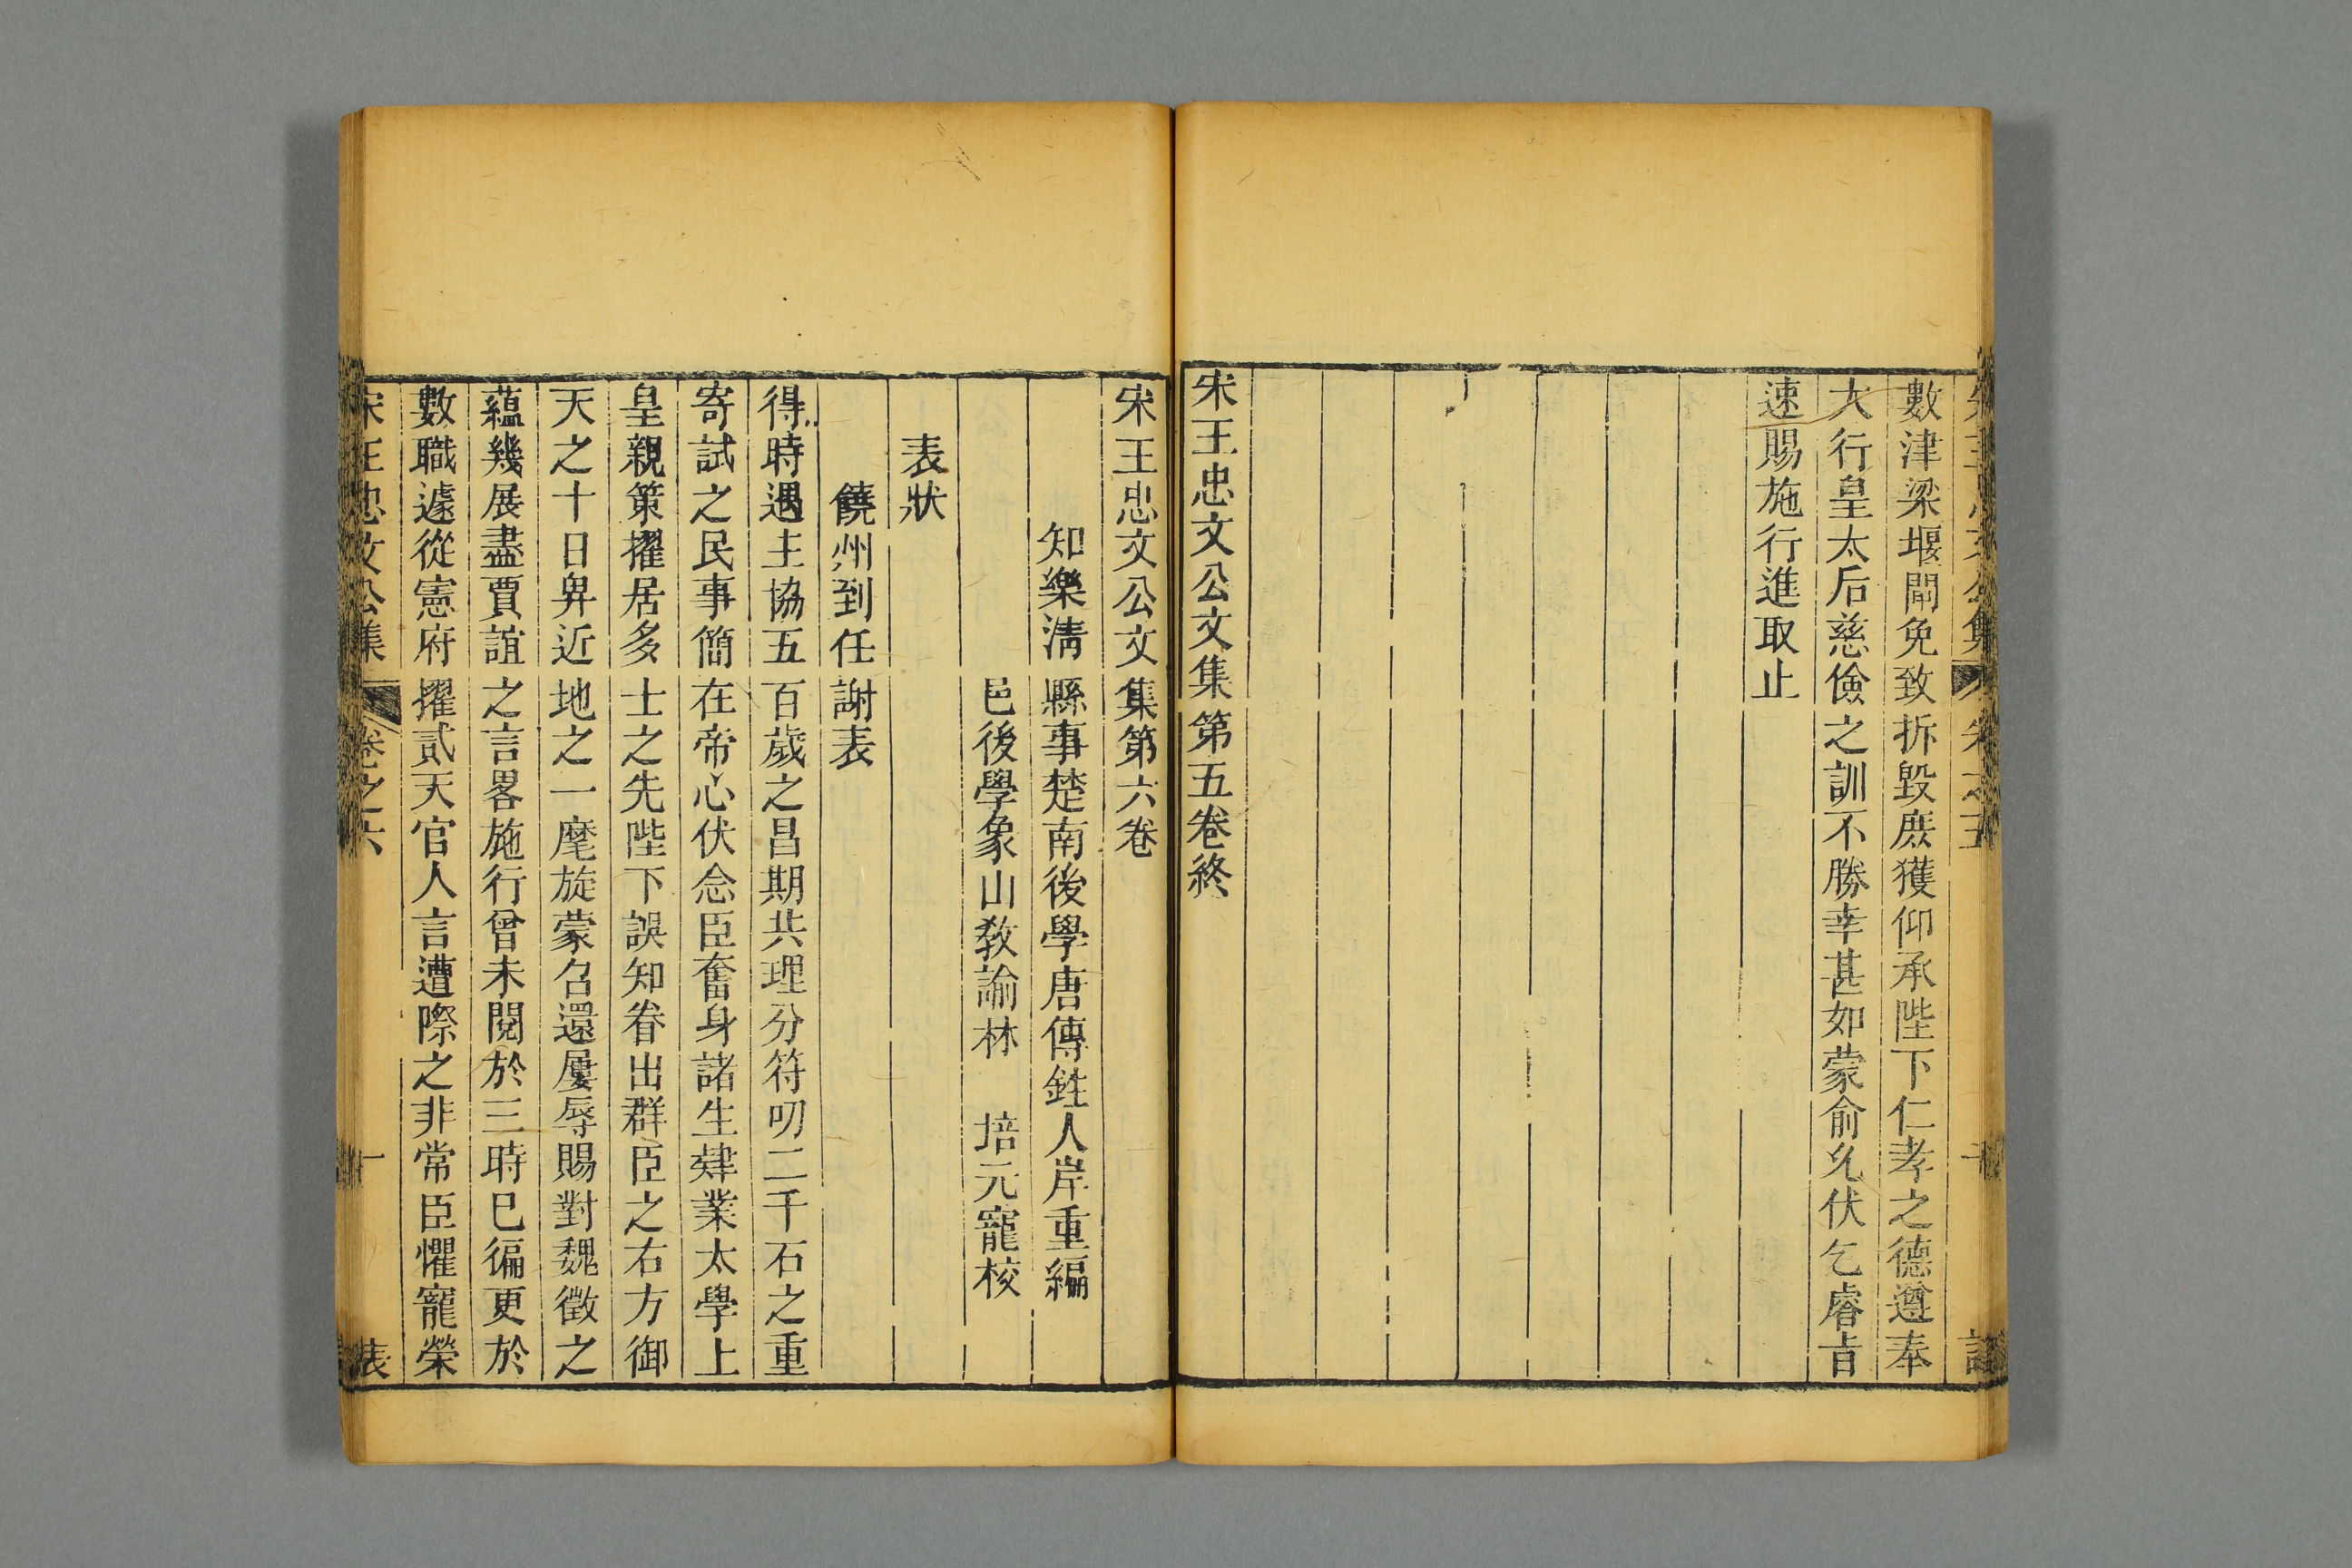 數津梁堰閘免致拆毀庶獲仰承陛下仁孝之德遵奉
大行皇太后慈儉之訓不勝幸甚如蒙俞允伏乞睿旨
速賜施行進取止
宋王忠文公文集第五卷終
宋王忠文公文集第六卷
知樂淸縣事楚南後學唐傳鉎人岸重編
邑後學象山敎諭林 培元寵校
表狀
饒州到任謝表
得時遇主協五百歲之昌期共理分符叨二千石之重
寄試之民事簡在帝心伏念臣奮身諸生肄業太學上
皇親策擢居多士之先陛下誤知眷出群臣之右方御
天之十日昇近地之一麾旋蒙召還屢辱賜對魏徵之
蘊幾展盡賈誼之言畧施行曾未閱於三時巳徧更於
數職遽從憲府擢貳天官人言遭際之非常臣懼寵榮
宋王忠文公集 卷之六 一 表